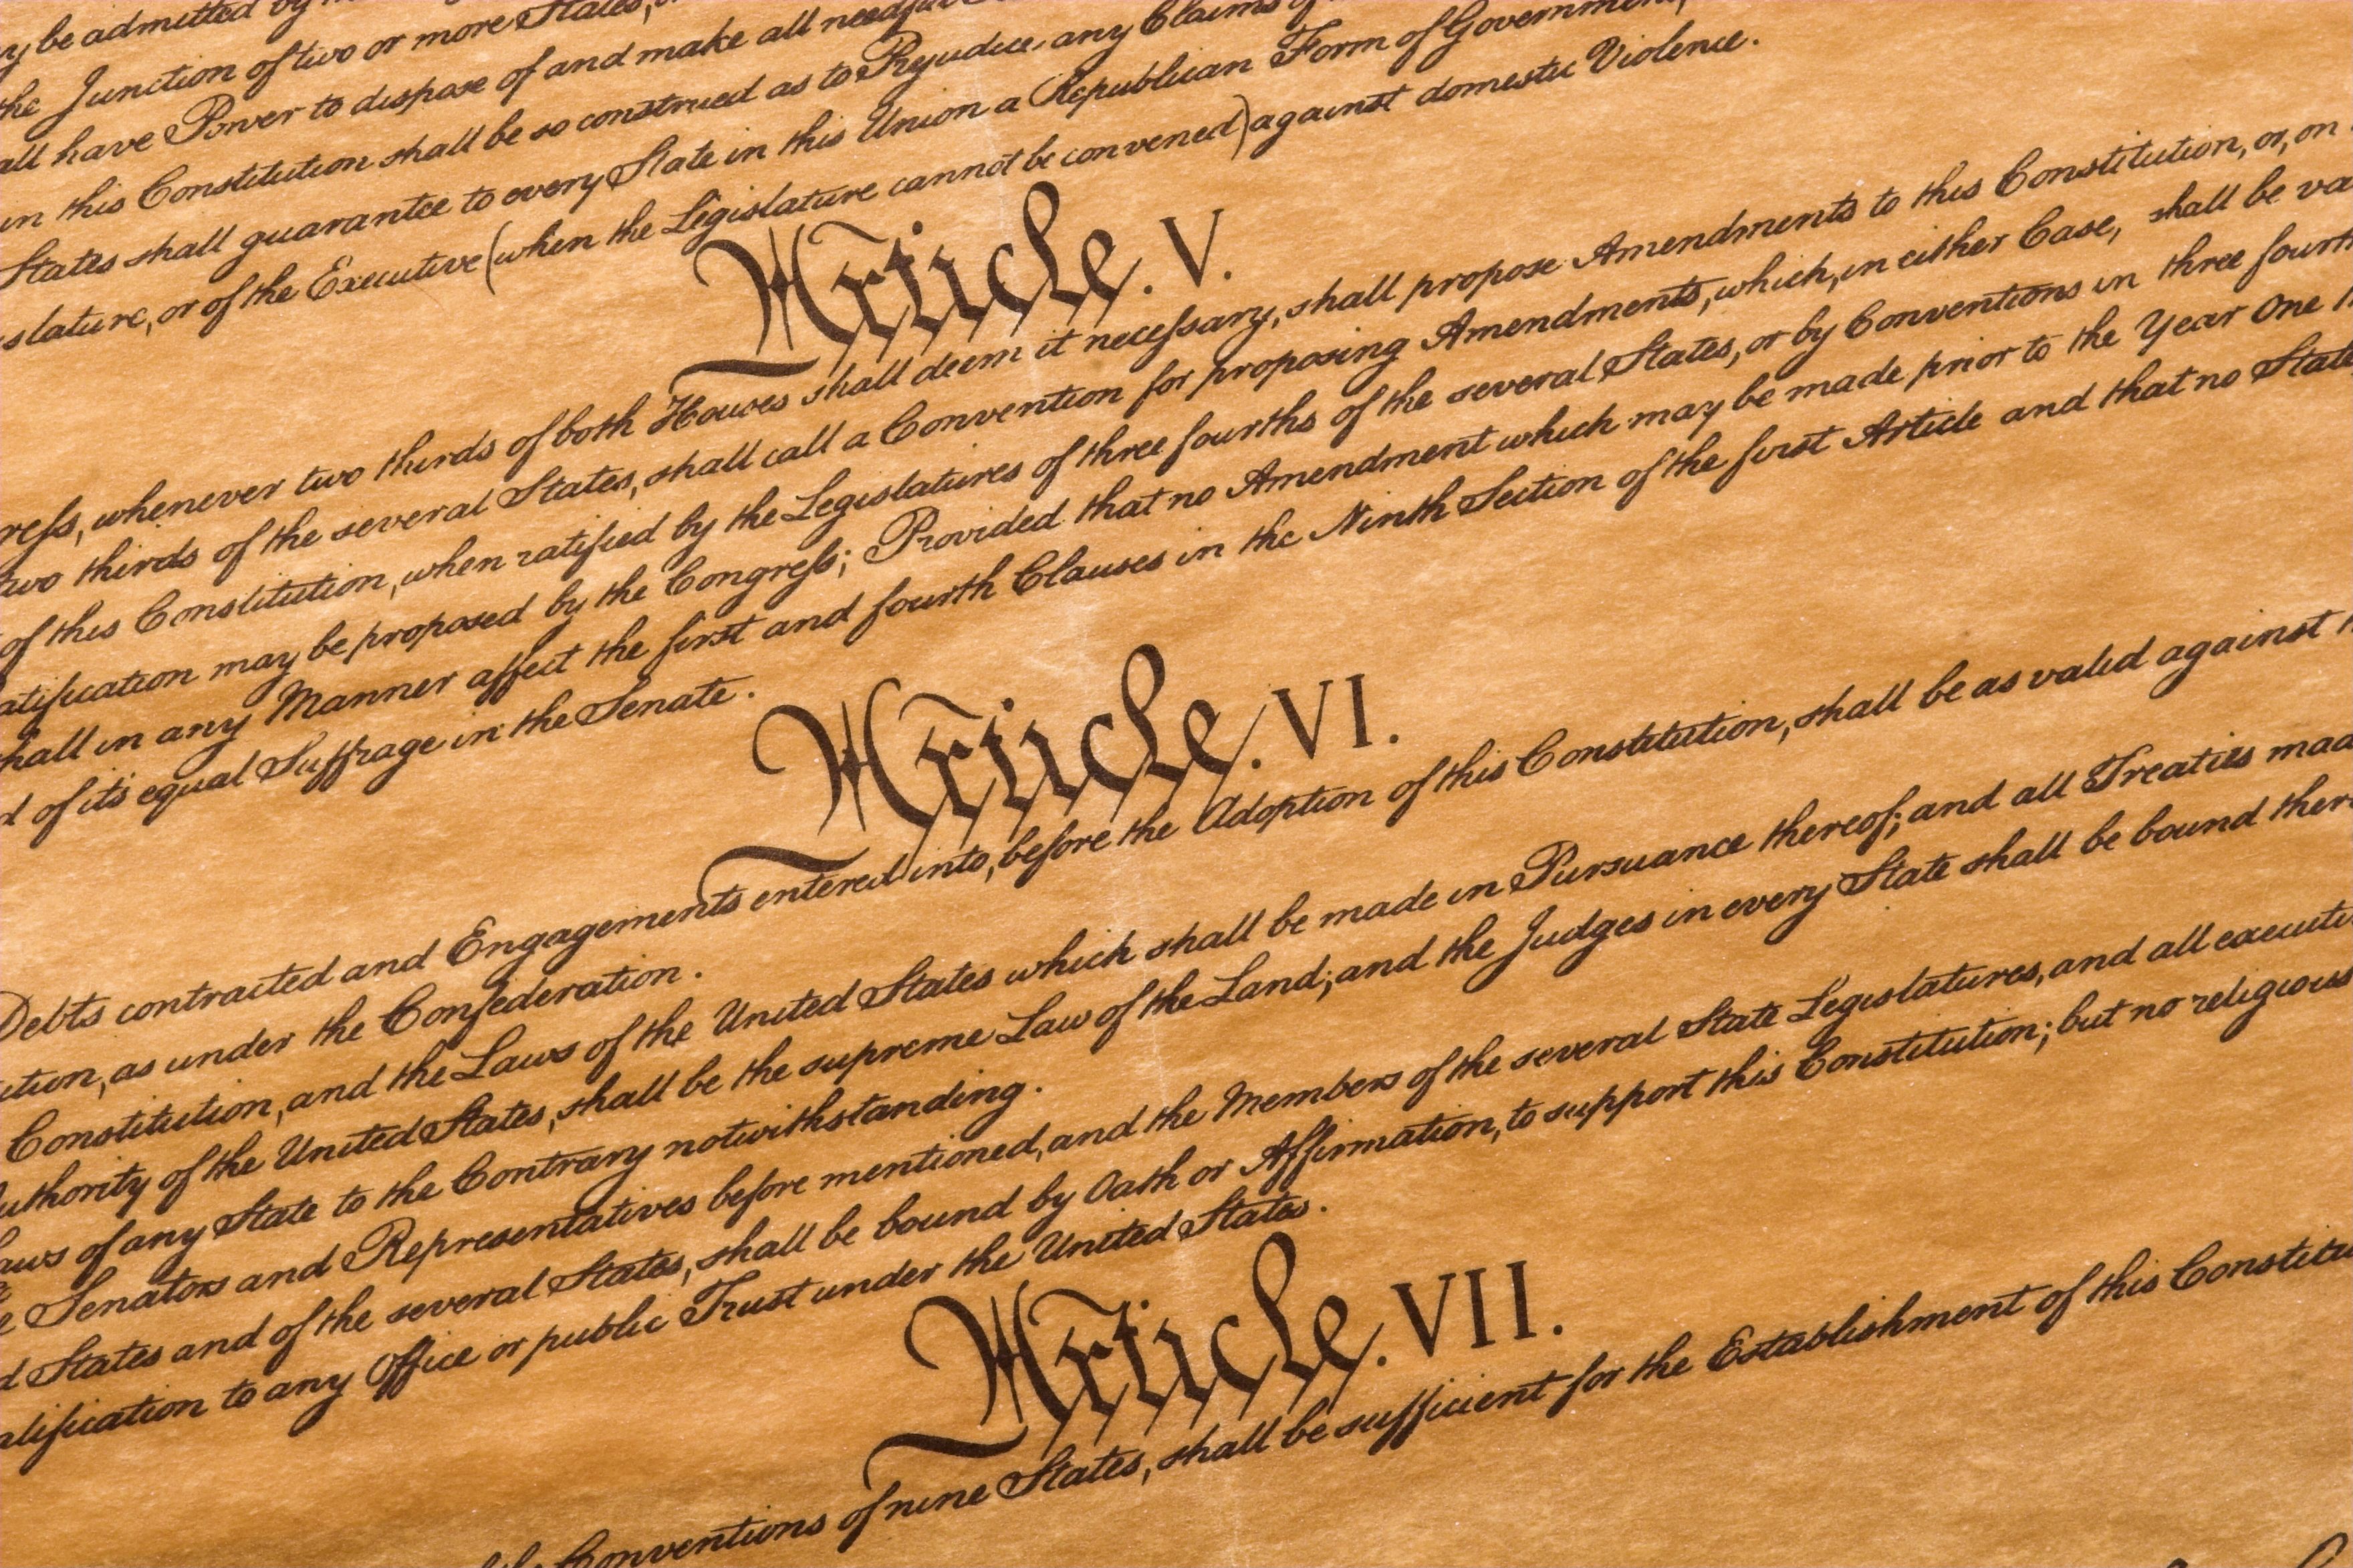 be admitted by
the Junction of two or more States,
all have Power to dispose of and make all needful
in this Constitution shall be so construed as to Prejudice any Claims of
States shall guarantee to every State in this Union a Republican Form of Government,
slature, or of the Executive (when the Legislature cannot be convened) against domestic Violence.
Article. V.
ress, whenever two thirds of both Houses shall deem it necessary, shall propose Amendments to this Constitution, or, on
two thirds of the several States, shall call a Convention for proposing Amendments, which, in either Case, shall be va
of this Constitution, when ratified by the Legislatures of three fourths of the several States, or by Conventions in three fourth
atification may be proposed by the Congress; Provided that no Amendment which may be made prior to the Year One
hall in any Manner affect the first and fourth Clauses in the Ninth Section of the first Article and that no State
d of its equal Suffrage in the Senate.
Article. VI.
Debts contracted and Engagements entered into, before the Adoption of this Constitution, shall be as valid against
ution, as under the Confederation.
Constitution, and the Laws of the United States which shall be made in Pursuance thereof; and all Treaties mad
uthority of the United States, shall be the supreme Law of the Land; and the Judges in every State shall be bound ther
aws of any State to the Contrary notwithstanding.
e Senators and Representatives before mentioned, and the Members of the several State Legislatures, and all executi
d States and of the several States, shall be bound by Oath or Affirmation, to support this Constitution; but no religious
alification to any Office or public Trust under the United States.
Article. VII.
Conventions of nine States, shall be sufficient for the Establishment of this Constitu